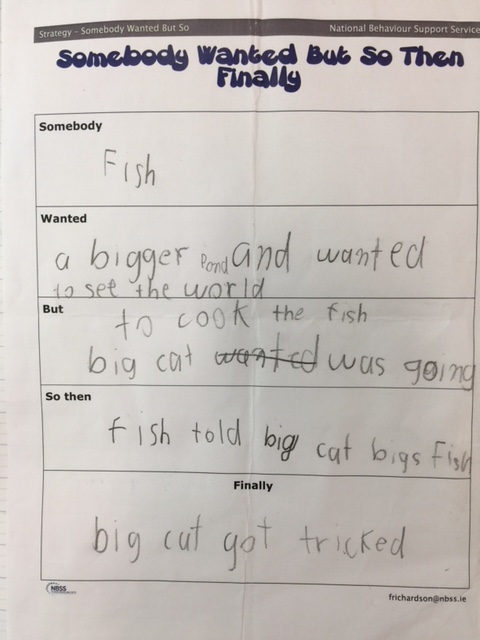 Strategy – Somebody Wanted But So
National Behaviour Support Service
Somebody Wanted But So Then
Finally
Somebody
Fish
Wanted
a bigger pond and wanted
to see the world
But
to cook the fish
big cat wanted was going
So then
fish told big cat bigs Fish
Finally
big cat got tricked
NBSS
frichardson@nbss.ie